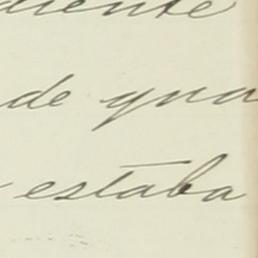 diente
de gua
estaba